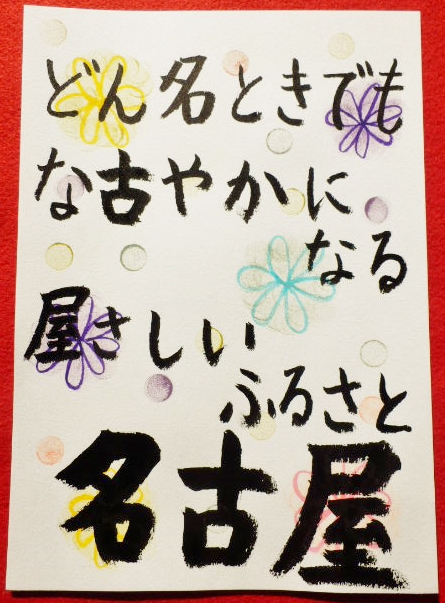 どん名ときでも
な古やかに
なる
屋さしい
ふるさと
名古屋